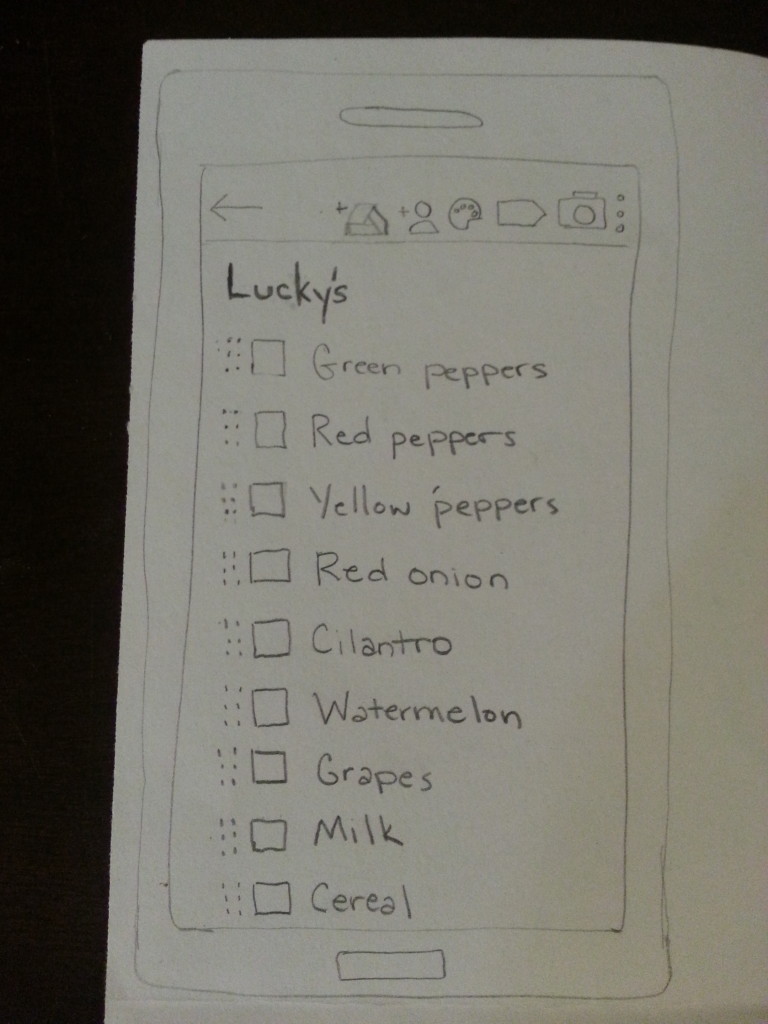 Lucky's
Green peppers
Red peppers
Yellow peppers
Red onion
Cilantro
Watermelon
Grapes
Milk
Cereal